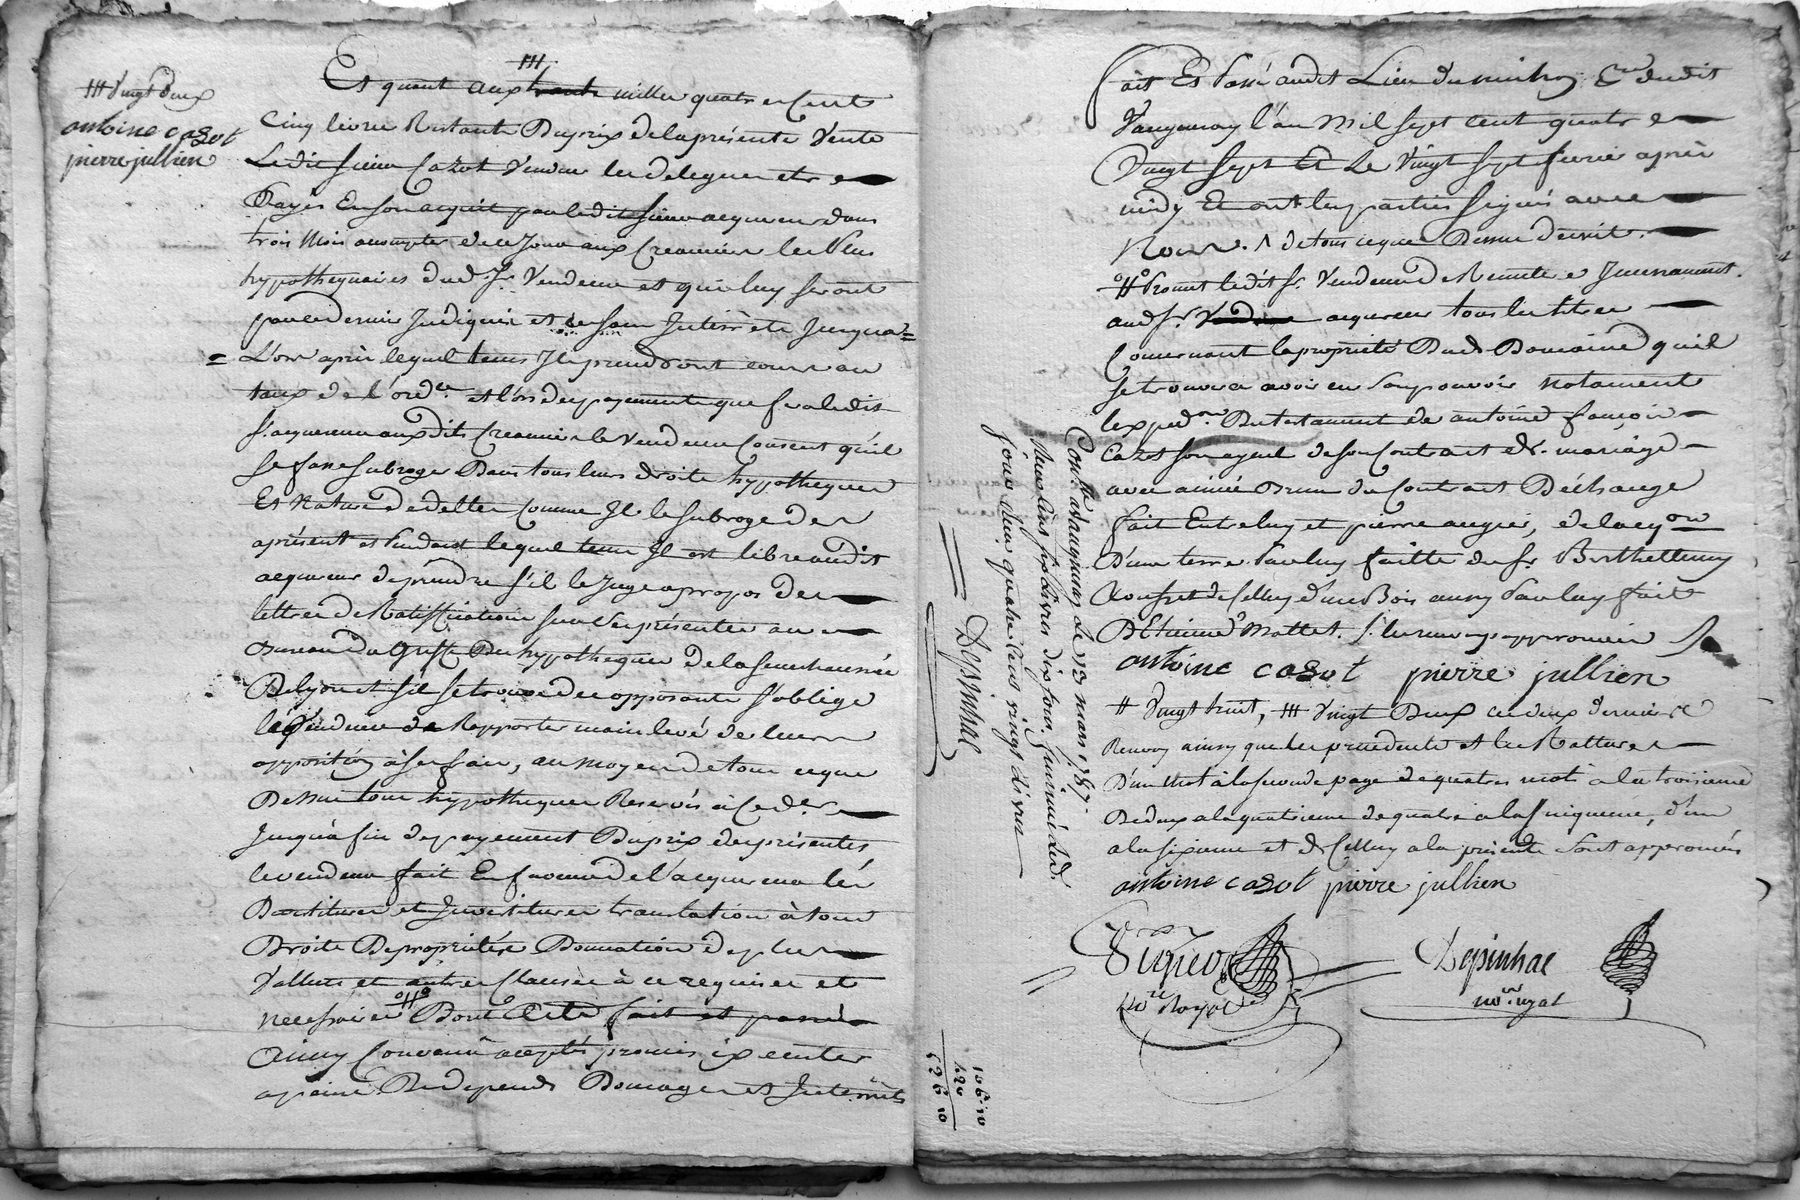 III vingt deux
antoine cazot
pierre jullien
III
Et quant aux trente mille quatre cents
Cinq livres Restants Du prix de la présente Vente
Ledit sieur Cazot Vendeur les delegue etre
Payés En son acquit par ledit sieur acquereur dans
trois Mois a compter de ce Jour aux Creanciers les Plus
hypothequaires dud. Sr. Vendeur et qui luy seront
par ce dernier Indiqués et sans Interets Jusqu'a-
Lors après lequel tems Ils prendront cours au
taux de L'ordce. et lors des payements que fera ledit
Sr. acquereur auxdits Creanciers le Vendeur Consent qu'il
se fasse subroger Dans tous leurs droits hypotheques
Et Nature de dettes Comme Il le subroge des
aprésent et Pendant lequel tems Il est libre audit
acquereur de prendre s'il le Juge apropos des
lettres de Ratiffication sur Ces présentes au
Bureau du Greffe Des hypotheques de la senechaussée
De lyon et s'il se trouve des opposants s'oblige
le Vendeur de Rapporter mainlevé de leurs
opposition à ses frais, au moyen de tout ce que
Dessus tous hypotheques Reservés
Jusqu'a fin de payement Du prix des présentes
le vendeur fait En faveur de l'acquereur les
Devestitures et Investitures translation de tous
Droits De propriétés Donnation de plus
Values et autres Clauses à ce requises et
necessaires o#o Dont Acte fait et passé
Ainsy Convenu accepté promis executer
a peine De depends Domages et Interrets
fait Et Passé audit Lieu du
Vaugneray l'an Mil sept cent quatre
Vingt sept Et Le Vingt sept fevrier après
midy Et ont les parties signés avec
Nous . de tous ce que Dessus d'ecrit.
o#o Promet ledit Sr. Vendeur de Remettre
aud. Sr. Vendeur acquereur tous les titres
Concernant la propriété Dud. Domaine qu'il
se trouvera avoir en son pouvoir notament
l'expedon. Du testament de antoine françois
Cazot son ayeul de son Contrat de mariage
avec aimée Brun du Contrat D'échange
fait Entre luy et pierre augier, de l'acqon
D'une terre Par luy faitte du Sr. Berthellemy
Et de Celluy d'un Bois aussy Par luy fait
D'Etienne Mattet.
antoine cazot pierre jullien
# Vingt huit, III Vingt Deux ces deux derniers
Renvoy ainsy que les precedents et les Ratures
D'un Mot à la seconde page de quatre mots a la troisieme
De deux a la quatrieme de quatre a la cinquieme, d'un
a la sixieme et de Celluy a la presente sont approuvés
antoine cazot pierre jullien
Nore. Royal
Despinhac
nore. royal
Conlé. a Vaugneray Le 12 mars 1787
Reçu Cent six Livres dix sous. Insinué Led.
Jour Reçu quatre Cents vingt Livres
Despinhac
106..10
420
526 10